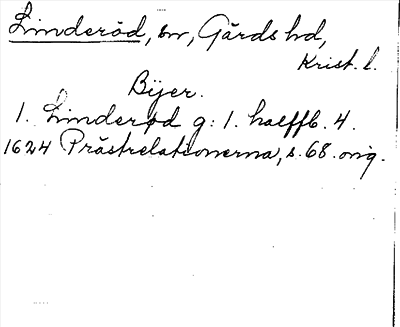 Linderöd, sn, Gärds hd,
Krist. l.
Bÿer.
1. Linderød g: 1. halffb. 4.
1624 Prästrelationerna, s. 68. orig.